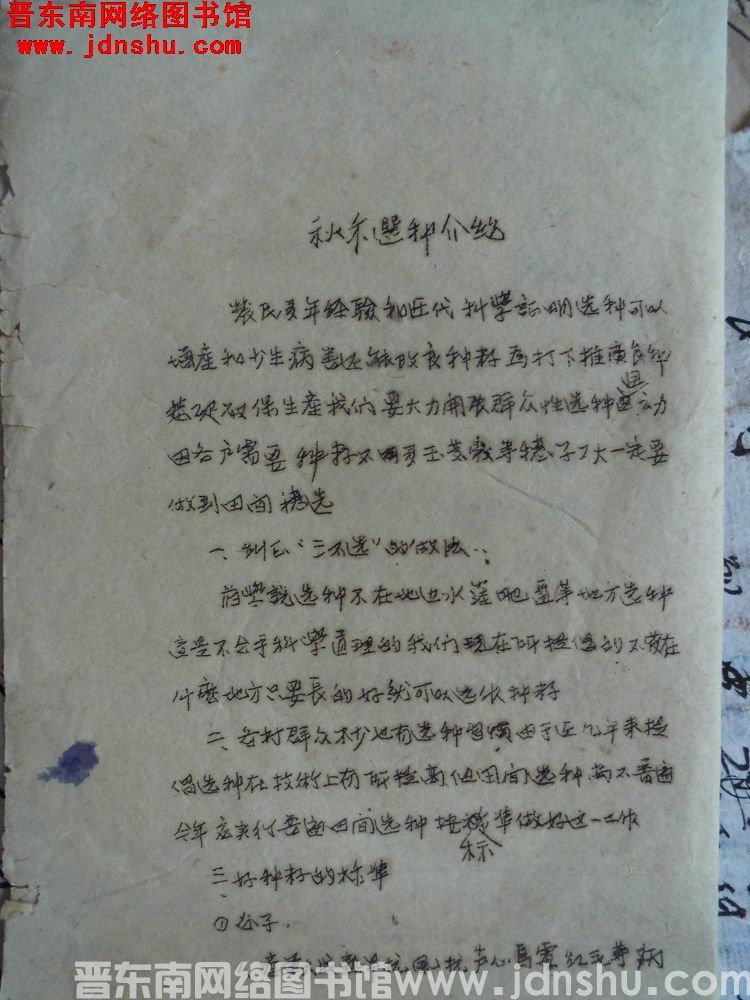 晋东南网络图书馆
www.jdnshu.com
秋禾選种介绍
農民多年经驗和近代科學証明选种可以
增產和少生病害还能改良种籽為打下推廣良种
基礎确保生產我们要大力開展群众性选种运动
田各户需要种籽不玉茭穀等穗子大一定要
做到田间穗选
一、糾正“三不选”的做法：
前學說选种不在地边水道肥堆等地方选种
這是不合乎科學道理的我们现在所提倡的不管在
什麼地方只要長的好就可以选作种籽
二、各村群众不少也有选种習慣由于近几年来提
倡选种在技術上有所提高但田间选种尚不普遍
今年应实行普遍田间选种按標準做好这一工作
三好种籽的标準
①谷子.
病
晋东南网络图书馆 www.jdnshu.com